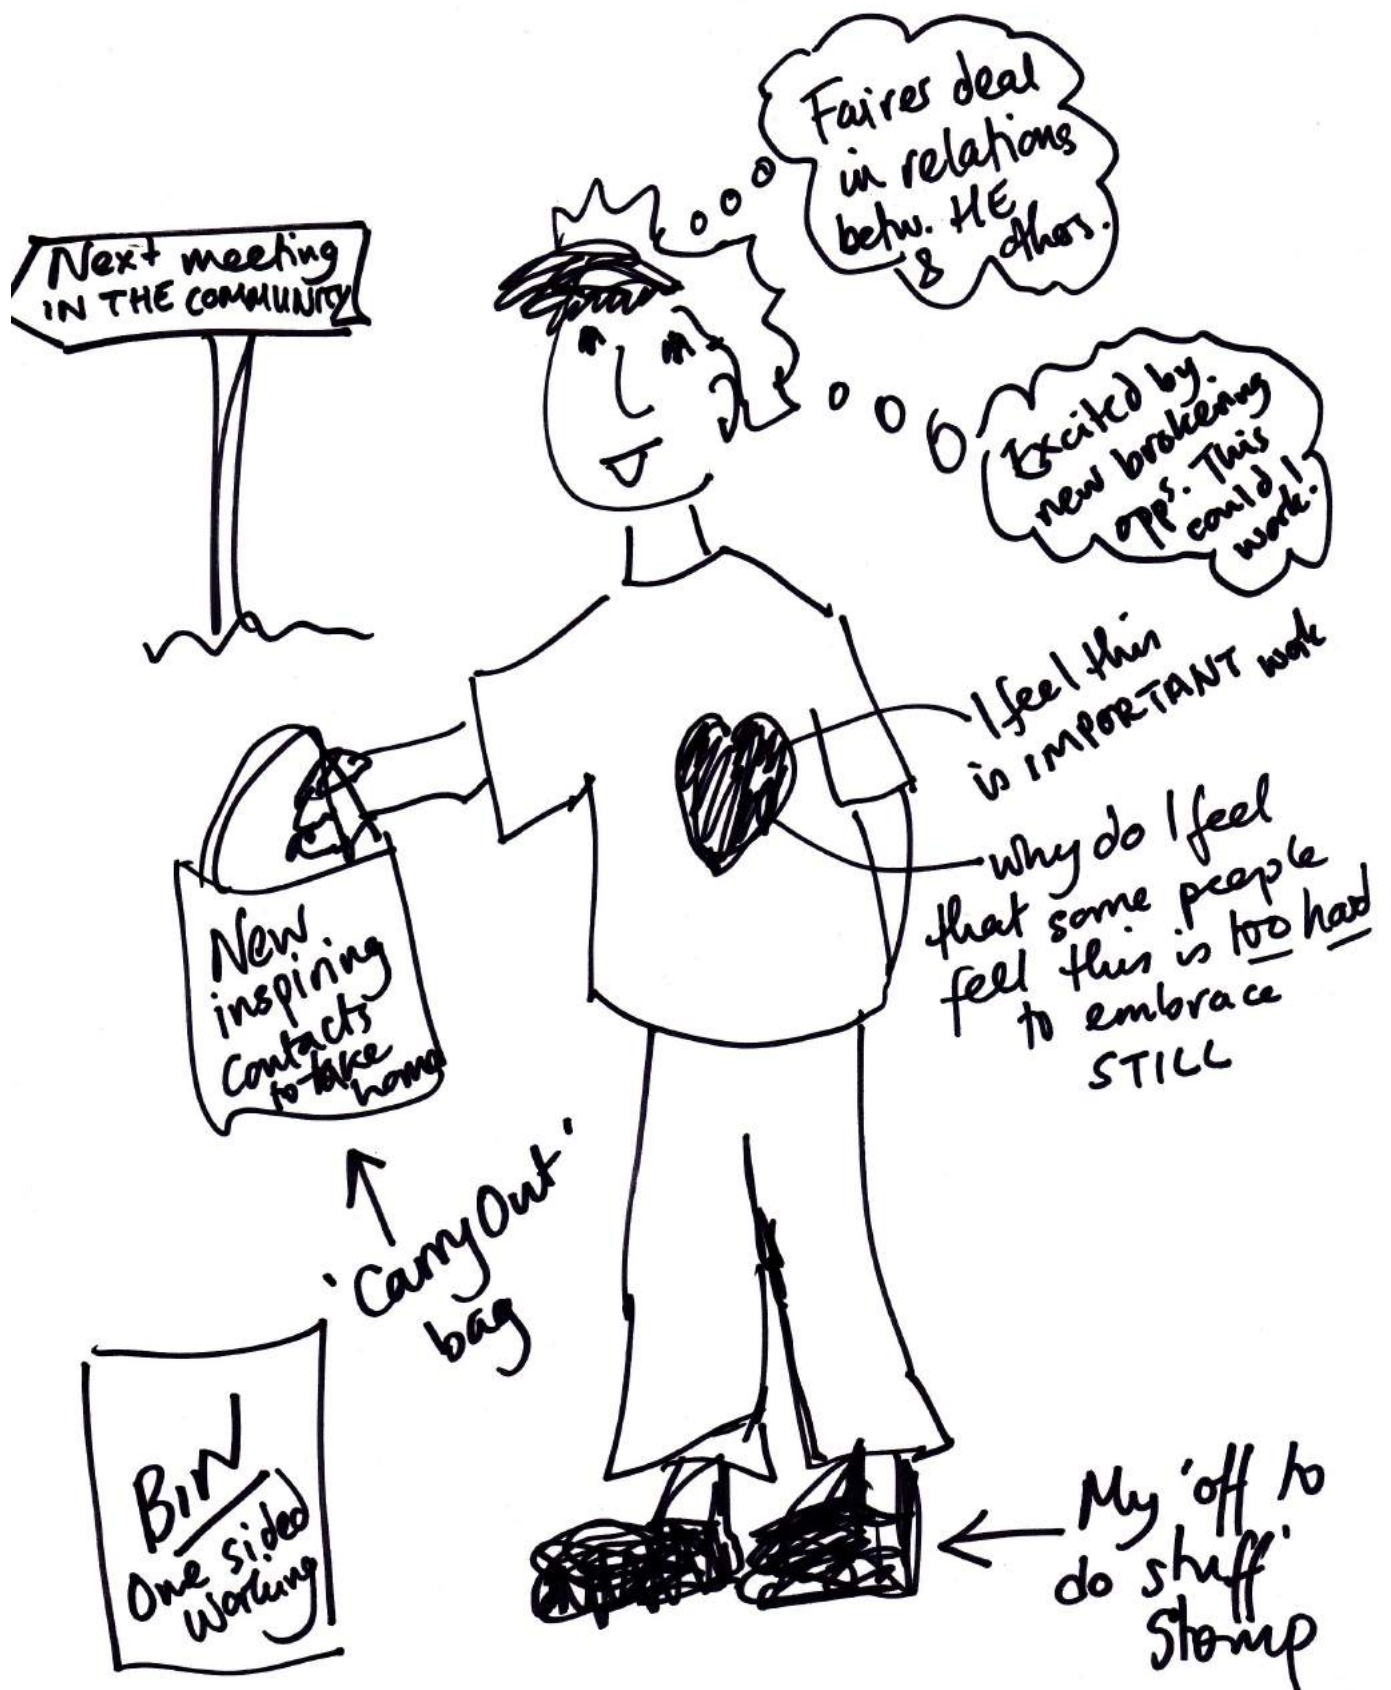 Fairer deal
in relations
betw. HE
& others.
Next meeting
IN THE COMMUNITY
Excited by
new brokering
opps. This
could
work!
I feel this
is IMPORTANT work
why do I feel
that some people
feel this is too hard
to embrace
STILL
New
inspiring
contacts
to take
home
'Carry Out'
bag
BIN
One sided
working
My 'off to
do stuff'
Stomp